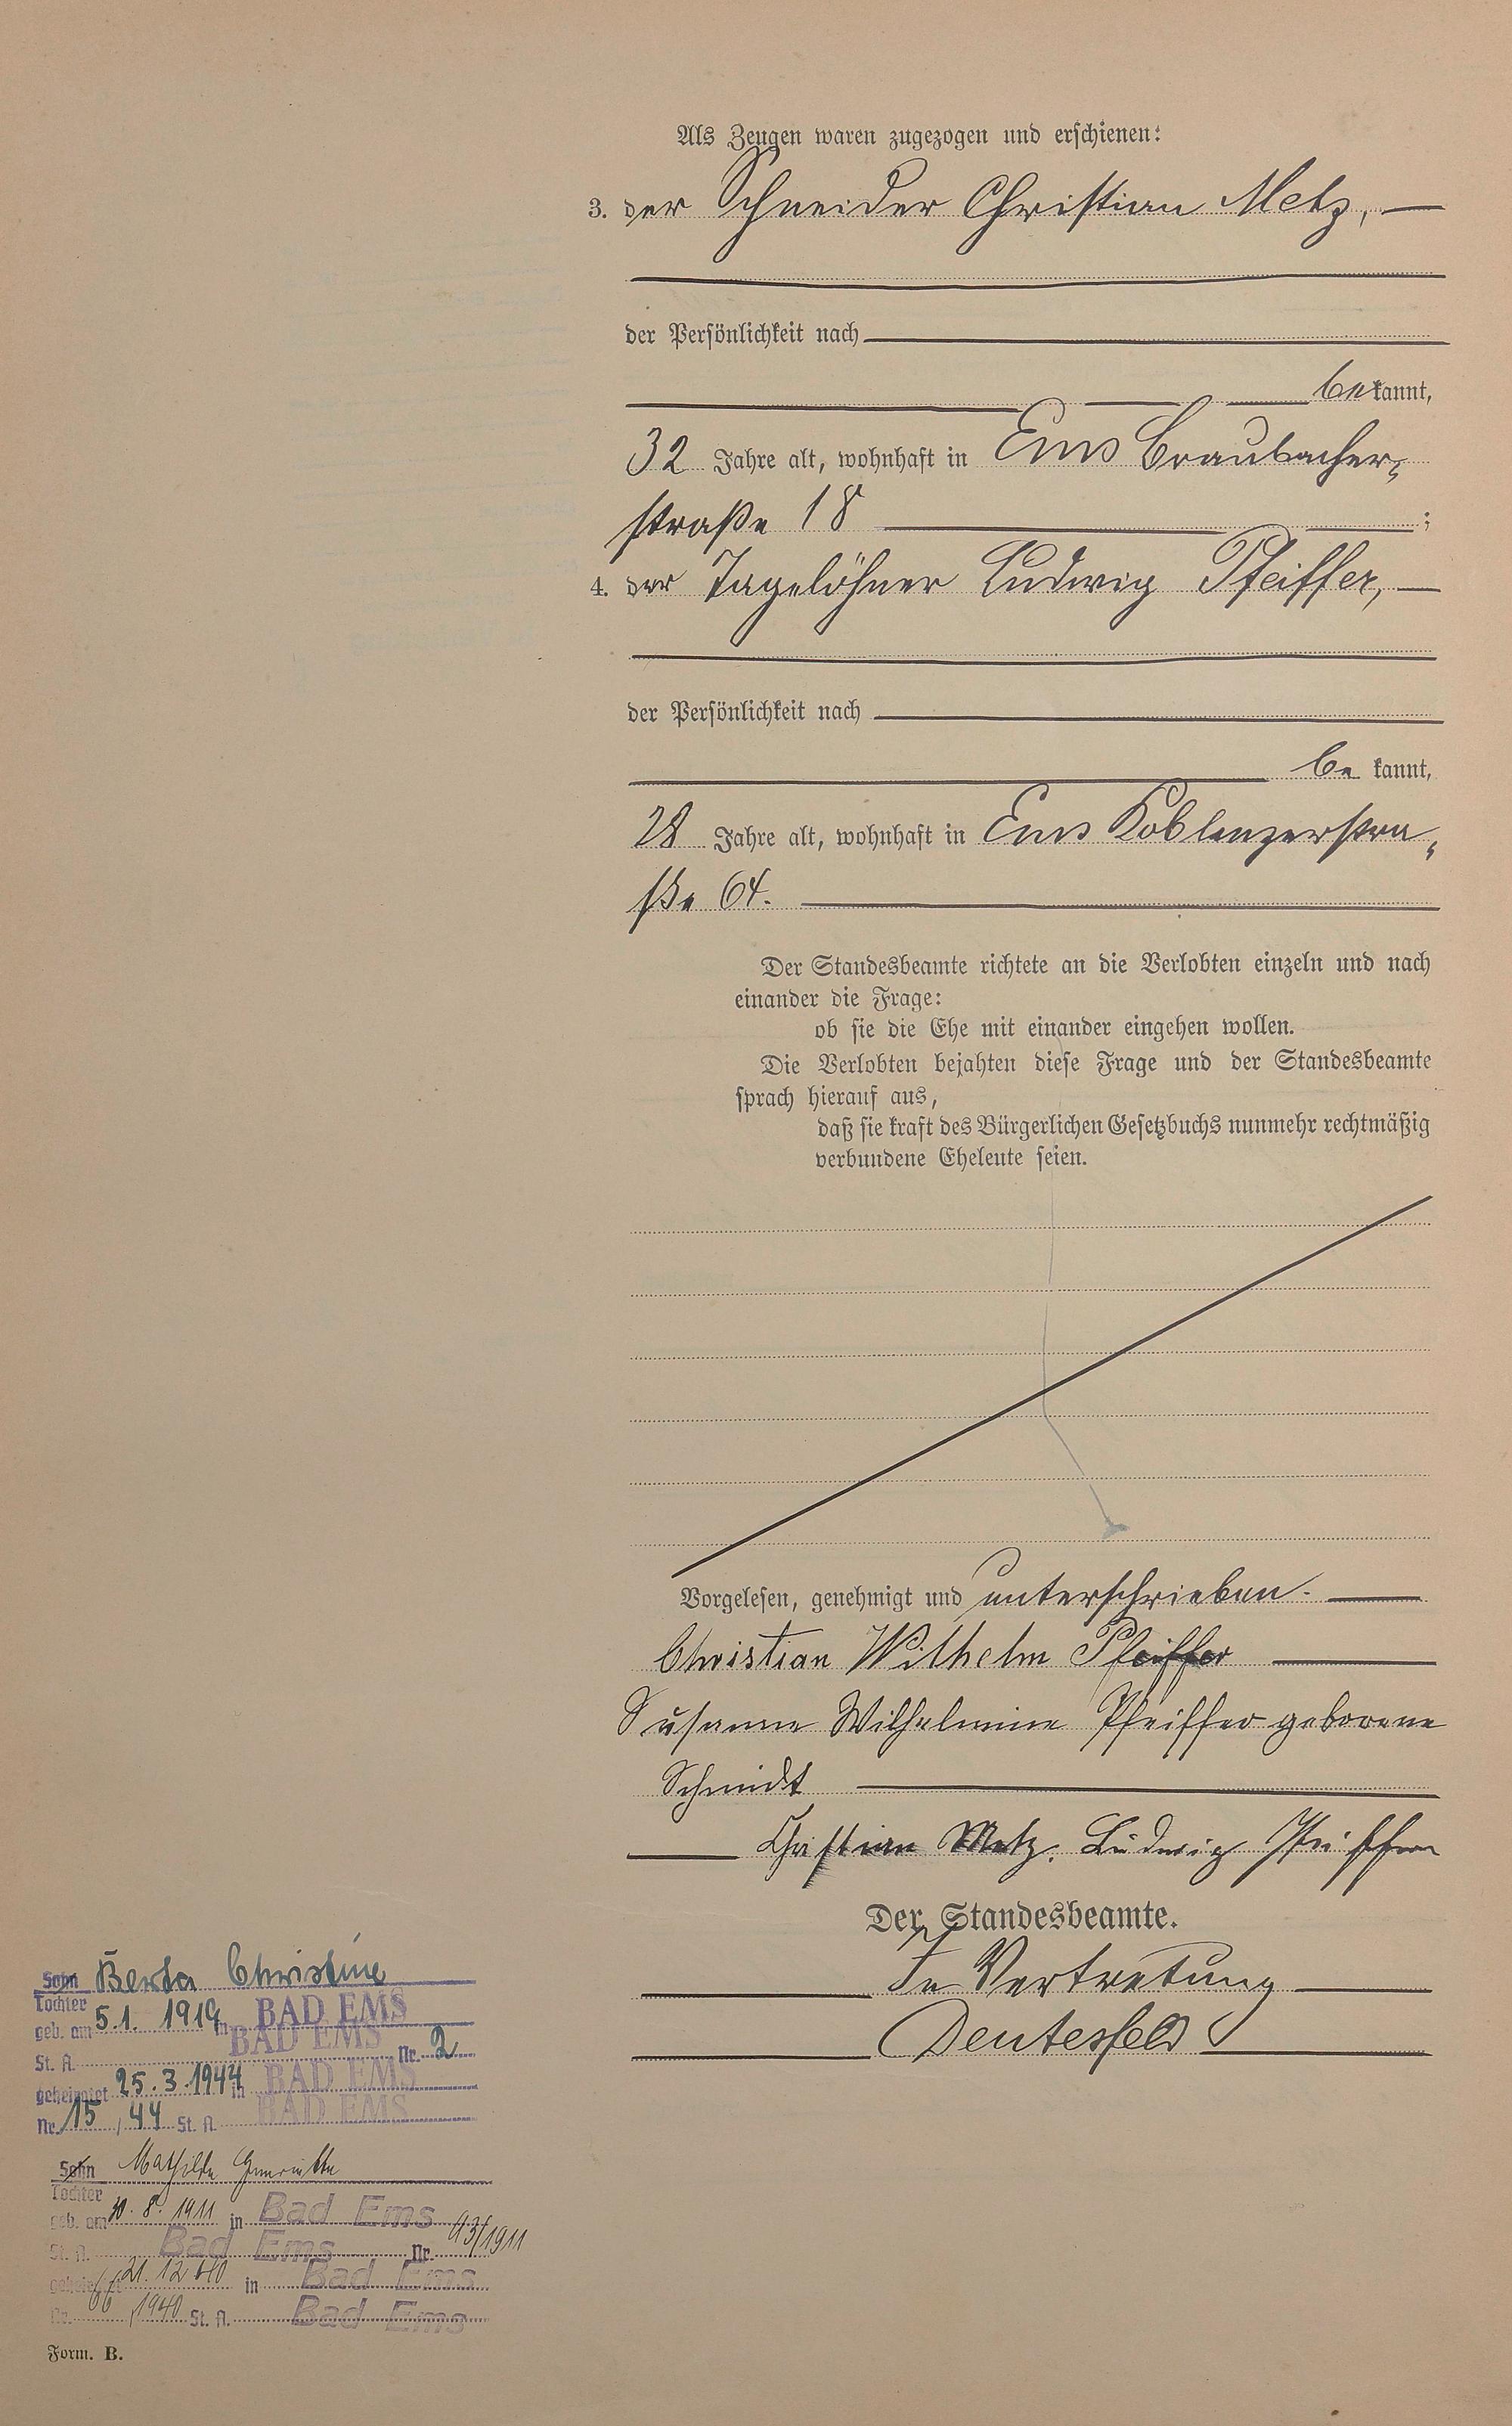 Als Zeugen waren zugezogen und erschienen:
3. der Schneider Christian Metz,
der Persönlichkeit nach
bekannt,
32 Jahre alt, wohnhaft in Ems Braubacher-
straße 18 ;
4. der Tagelöhner Ludwig Pfeiffer,
der Persönlichkeit nach
be kannt,
28 Jahre alt, wohnhaft in Ems Koblenzerstra-
ße 64.
Der Standesbeamte richtete an die Verlobten einzeln und nach
einander die Frage:
ob sie die Ehe mit einander eingehen wollen.
Die Verlobten bejahten diese Frage und der Standesbeamte
sprach hierauf aus,
daß sie kraft des Bürgerlichen Gesetzbuchs nunmehr rechtmäßig
verbundene Eheleute seien.
Vorgelesen, genehmigt und unterschrieben.
Christian Wilhelm Pfeiffer
Susanne Wilhelmine Pfeiffer geborene
Schmidt
Christian Metz. Ludwig Pfeiffer
Der Standesbeamte.
In Vertretung
Deutesfeld
Sohn Berta Christine
Tochter
geb. am 5.1. 1919 in BAD EMS
St. A. BAD EMS Nr. 2
geheiratet 25.3.1944 in BAD EMS
Nr. 15 / 44 St. A. BAD EMS
Sohn Mathilde Henriette
Tochter
geb. am 30. 8. 1911 in Bad Ems
St. A. Bad Ems Nr. 93/1911
geheiratet 21. 12. 40 in Bad Ems
Nr. 66 / 1940 St. A. Bad Ems
Form. B.